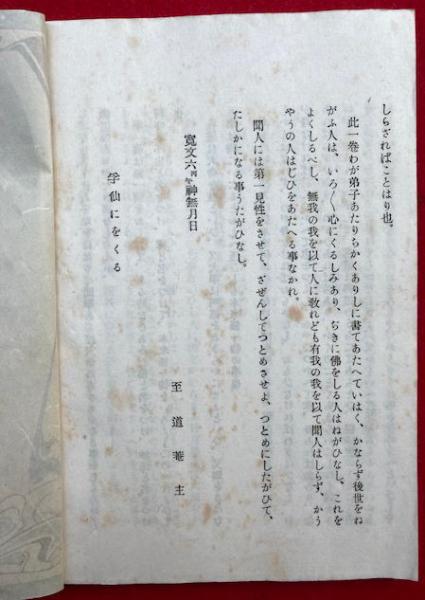 しらざればことはり也。
此一巻わが弟子あたりちかくありしに書てあたへていはく、かならず後世をね
がふ人は、いろ／＼心にくるしみあり、ぢきに佛をしる人はねがひなし、これを
よくしるべし、無我の我を以て人に教れども有我の我を以て聞人はしらず、かう
やうの人はじひをあたへる事なかれ。
聞人には第一見性をさせて、ざぜんしてつとめさせよ、つとめにしたがひて、
たしかになる事うたがひなし。
寛文六丙午神無月日
至道菴主
学仙にをくる